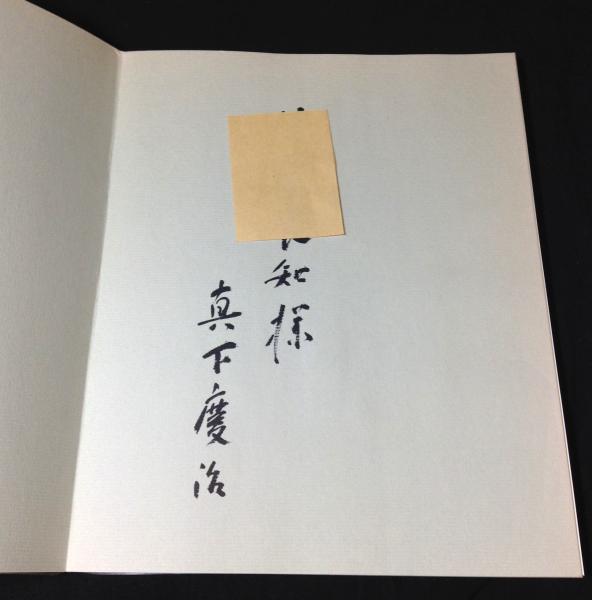 知様
真下慶治